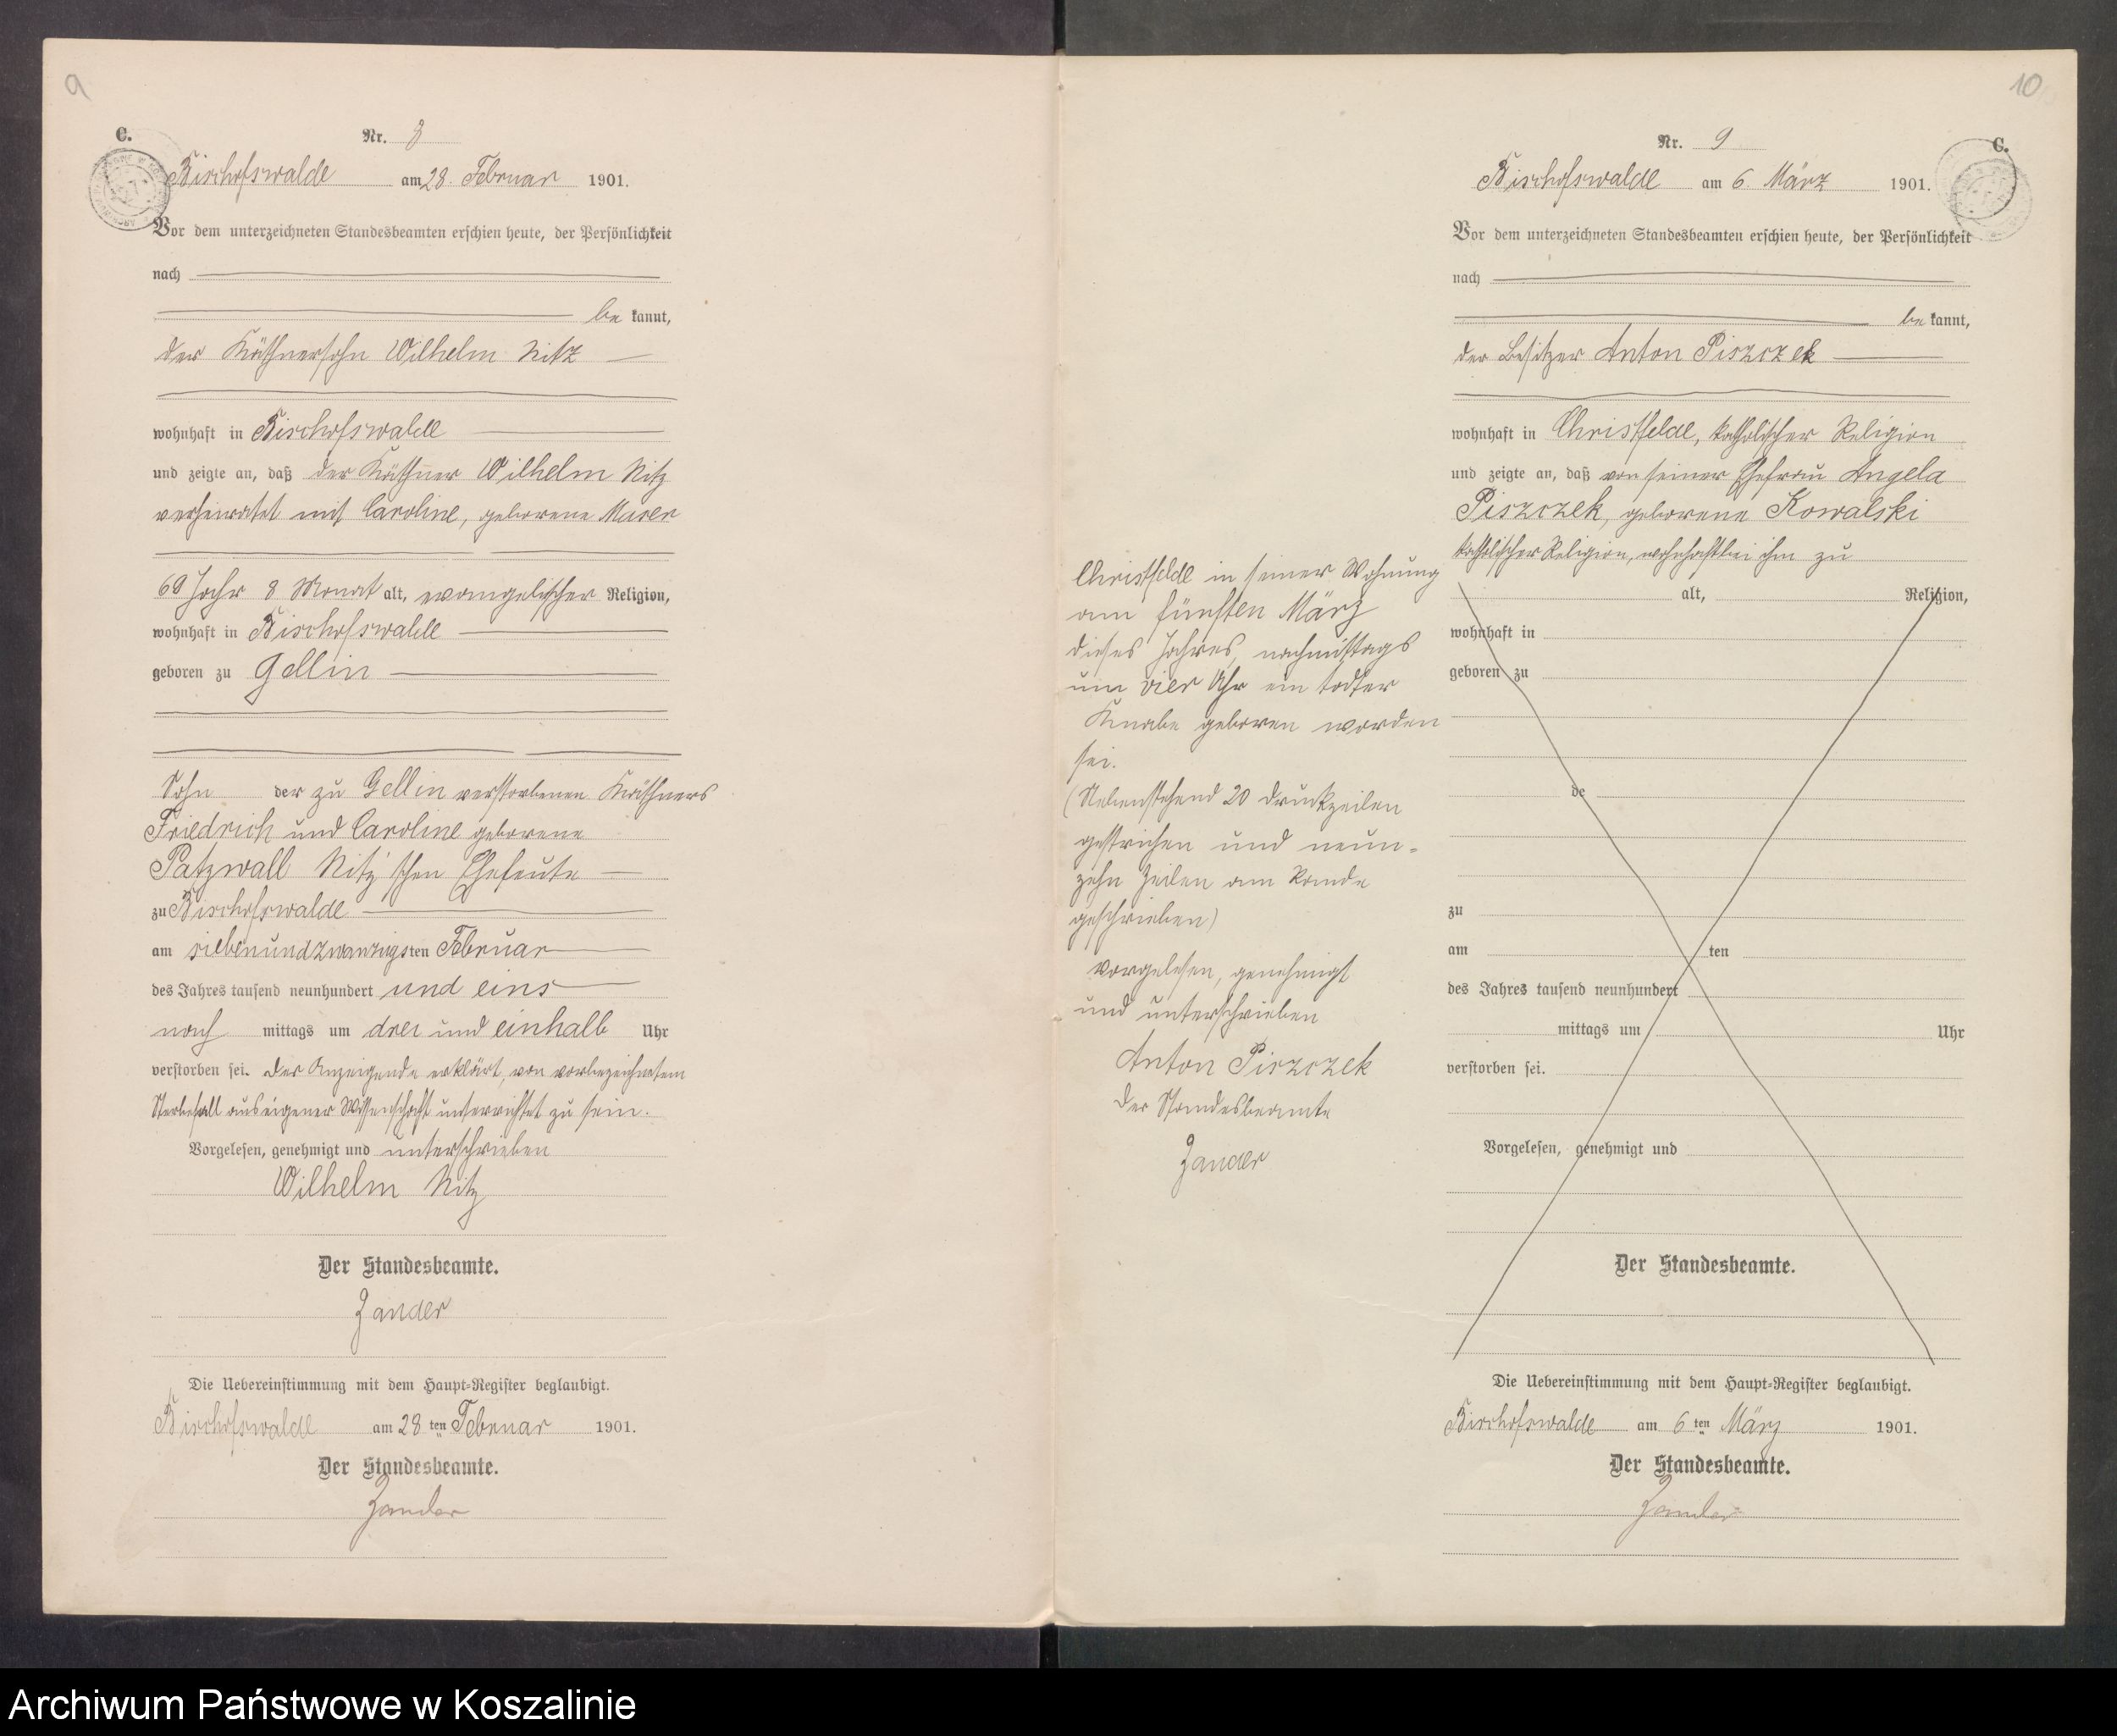 9
C.
Nr. 8
Bischofswalde am 28. Februar 1901.
Vor dem unterzeichneten Standesbeamten erschien heute, der Persönlichkeit
nach
be kannt,
der Käthnersohn Wilhelm Nitz
wohnhaft in Bischofswalde
und zeigte an, daß der Käthner Wilhelm Nitz
verheiratet mit Caroline, geborene Maser
69 Jahr 8 Monat alt, evangelischer Religion,
wohnhaft in Bischofswalde
geboren zu Gellin
Sohn der zu Gellin verstorbenen Käthners
Friedrich und Caroline geborene
Patzwall Nitz'schen Eheleute
zu Bischofswalde
am siebenundzwanzigsten Februar
des Jahres tausend neunhundert und eins
nach mittags um drei und einhalb Uhr
verstorben sei. Der Anzeigende erklärt, von vorbezeichnetem
Sterbefall aus eigener Wissenschaft unterrichtet zu sein.
Vorgelesen, genehmigt und unterschrieben
Wilhelm Nitz
Der Standesbeamte.
Zander
Die Uebereinstimmung mit dem Haupt=Register beglaubigt.
Bischofswalde am 28 ten Februar 1901.
Der Standesbeamte.
Zander
10
Nr. 9
C.
Bischofswalde am 6. März 1901.
Vor dem unterzeichneten Standesbeamten erschien heute, der Persönlichkeit
nach
be kannt,
der Besitzer Anton Piszczek
wohnhaft in Christfelde, katholischer Religion
und zeigte an, daß von seiner Ehefrau Angela
Piszczek, geborene Kowalski
katholischer Religion, wohnhaft bei ihm zu
Christfelde in seiner Wohnung
am fünften März
dieses Jahres, nachmittags
um vier Uhr ein todter
Knabe geboren worden
sei.
(Nebenstehend 20 Druckzeilen
gestrichen und neun=
zehn Zeilen am Rande
geschrieben)
vorgelesen, genehmigt
und unterschrieben
Anton Piszczek
Der Standesbeamte
Zander
alt, Religion,
wohnhaft in
geboren zu
de
zu
am ten
des Jahres tausend neunhundert
mittags um Uhr
verstorben sei.
Vorgelesen, genehmigt und
Der Standesbeamte.
Die Uebereinstimmung mit dem Haupt=Register beglaubigt.
Bischofswalde am 6 ten März 1901.
Der Standesbeamte.
Zander
Archiwum Państwowe w Koszalinie